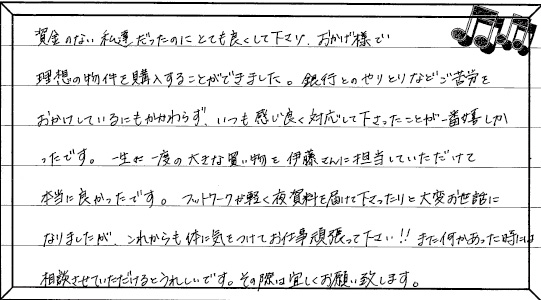 資金のない私達だったのにとても良くして下さり、おかげ様で
理想の物件を購入することができました。銀行とのやりとりなどご苦労を
おかけしているにもかかわらず、いつも感じ良く対応して下さったことが一番嬉しか
ったです。一生に一度の大きな買い物を伊藤さんに担当していただけて
本当に良かったです。フットワークが軽く夜資料を届けて下さったりと大変お世話に
なりましたが、これからも体に気をつけてお仕事頑張って下さい!!また何かあった時には
相談させていただけるとうれしいです。その際は宜しくお願い致します。